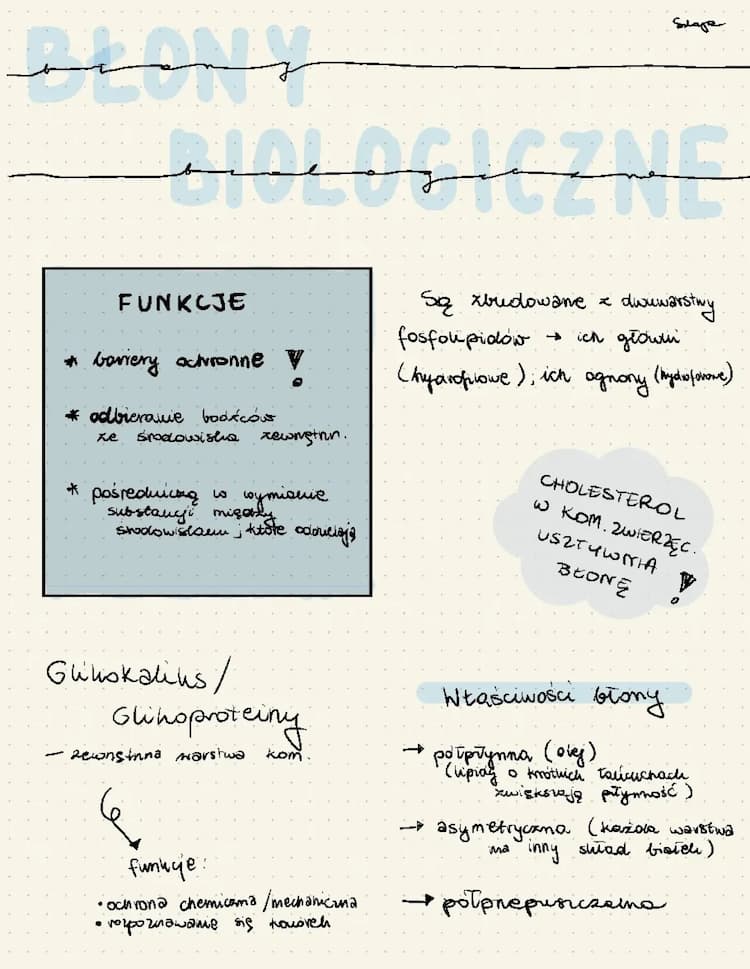 BŁONY
błony
BIOLOGICZNE
biologiczne
FUNKCJE
* bariery ochronne !
* odbieranie bodźców
ze środowiska zewnętrzn.
* pośredniczą w wymianie
substancji między
środowiskami, które oddzielają
Są zbudowane z dwuwarstwy
fosfolipidów → ich główki
(hydrofilowe), ich ogony (hydrofobowe)
CHOLESTEROL
W KOM. ZWIERZĘC.
USZTYWNIA
BŁONĘ !
Glikokaliks/
Glikoproteiny
- zewnętrzna warstwa kom.
funkcje:
• ochrona chemiczna/mechaniczna
• rozpoznawanie się komórek
Właściwości błony
→ półpłynna (olej)
(lipidy o krótkich łańcuchach
zwiększają płynność)
→ asymetryczna (każda warstwa
ma inny skład białek)
→ półprzepuszczalna